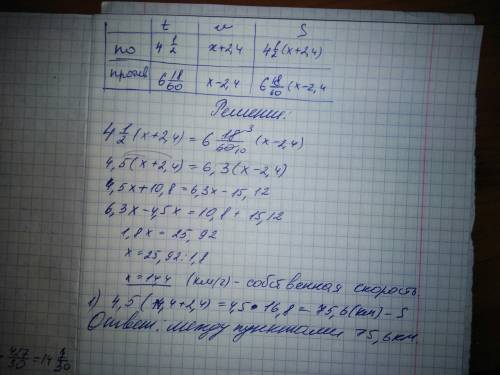 t v S
по 4 1/2 x+2,4 4 1/2 (x+2,4)
против 6 18/60 x-2,4 6 18/60 (x-2,4
Решение:
4 1/2 (x+2,4) = 6 18/60 3/10 (x-2,4)
4,5(x+2,4) = 6,3(x-2,4)
4,5x+10,8 = 6,3x-15,12
6,3x-4,5x = 10,8+15,12
1,8x = 25,92
x = 25,92:1,8
x = 14,4 (км/ч) - собственная скорость
1) 4,5(14,4+2,4) = 4,5·16,8 = 75,6(км) - S
Ответ: между пунктами 75,6км